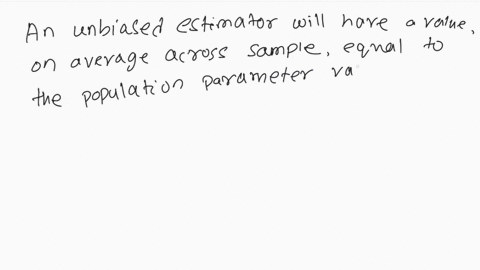 An unbiased estimator will have a value,
on average across sample, equal to
the population parameter va